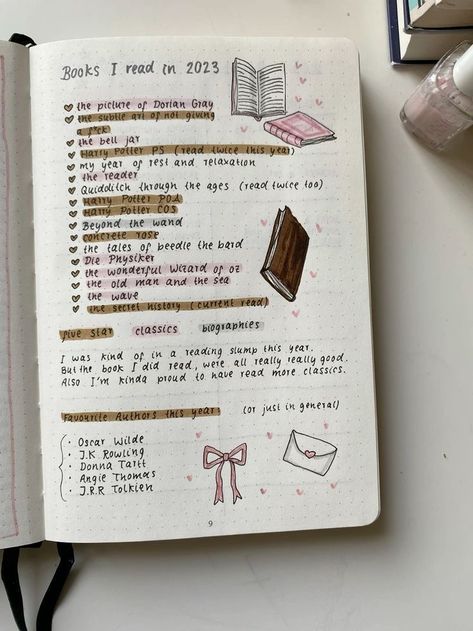 Books I read in 2023
the picture of Dorian Gray
the subtle art of not giving
a f*ck
the bell jar
Harry Potter PS (read twice this year)
my year of rest and relaxation
the reader
Quidditch through the ages (read twice too)
Harry Potter POA
Harry Potter COS
Beyond the wand
concrete rose
the tales of beedle the bard
Die Physiker
the wonderful Wizard of oz
the old man and the sea
the wave
the secret history (current read)
five star classics biographies
I was kind of in a reading slump this year.
But the book I did read, were all really really good.
Also I'm kinda proud to have read more classics.
Favourite Authors this year (or just in general)
• Oscar Wilde
• J.K Rowling
• Donna Tartt
• Angie Thomas
• J.R.R Tolkien
9